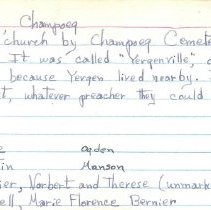 Champoeg
church by Champoeg Cemete
It was called "Yergenville,"
because Yergen lived nearby.
t, whatever preacher they could
Ogden
in Manson
ier, Norbert and Therese (unmark
ell, Marie Florence Bernier